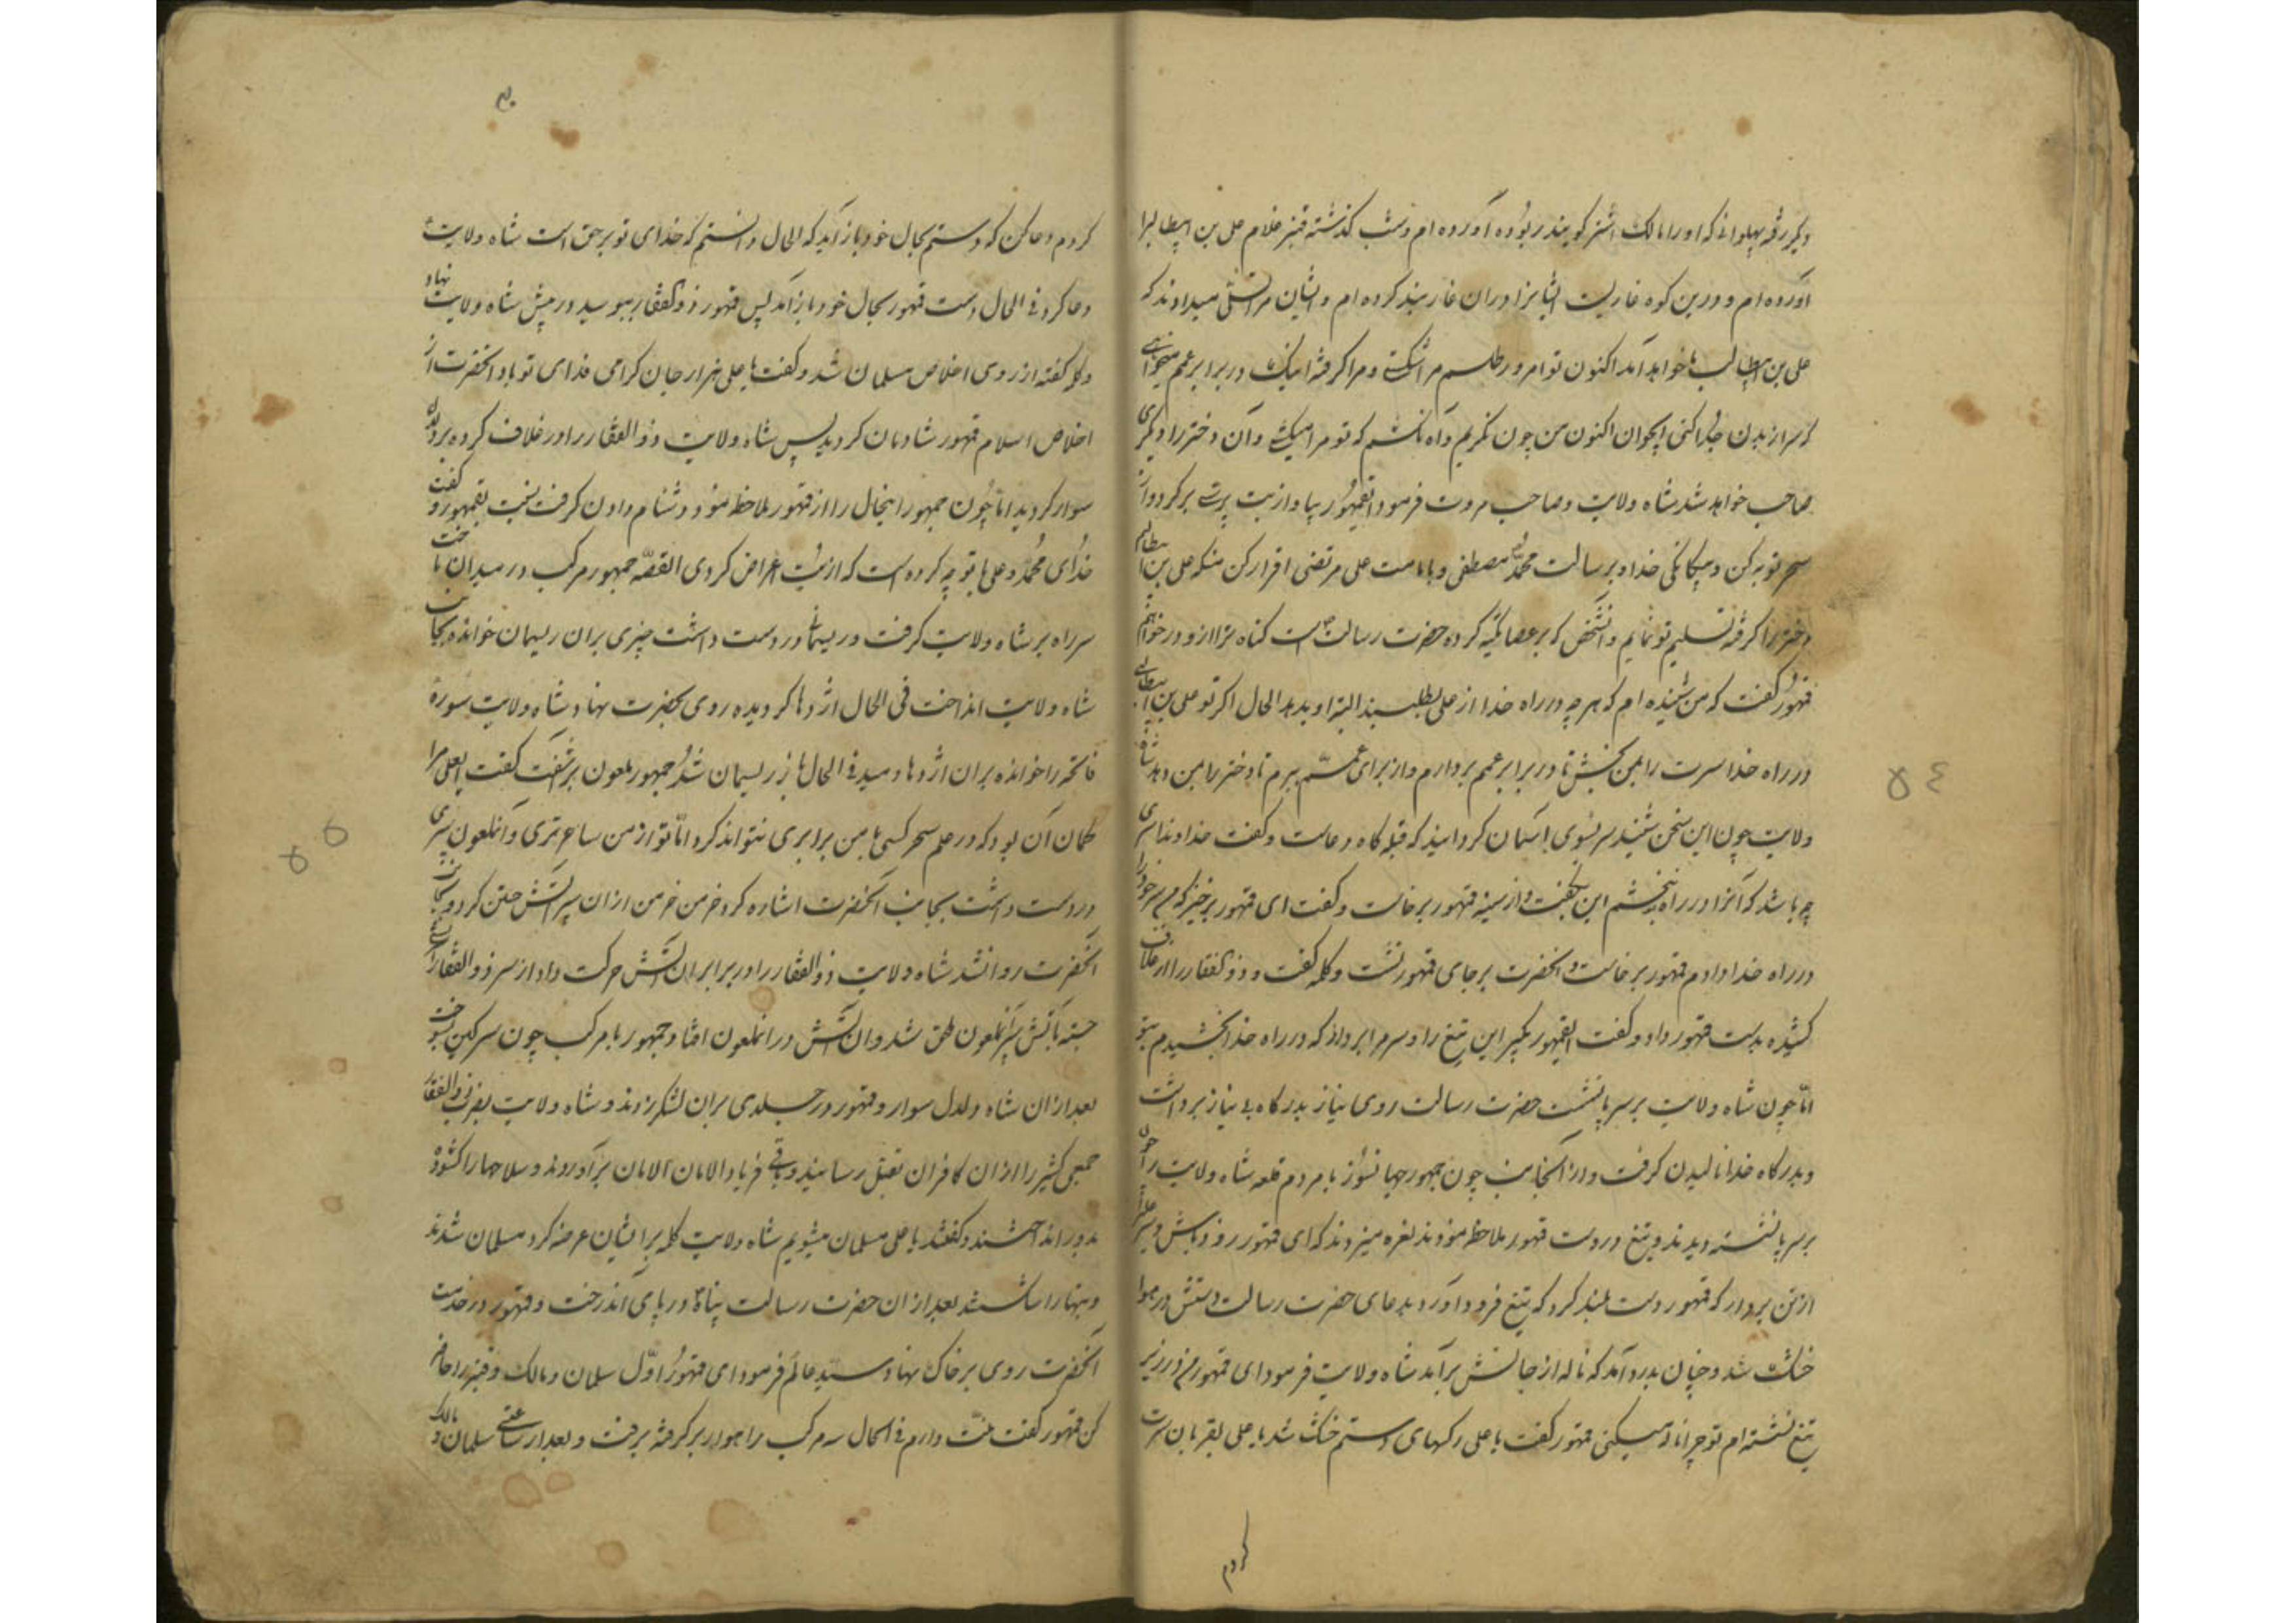 دیگر رفته پهلوانی که او را مالک اشتر گویند ربوده آورده ام و شب گذشته قنبر غلام علی بن ابیطالبرا
آورده ام و درین کوه غاریست ایشانرا در ان غار بند کرده ام و ایشان مرا تسلی میدادند که
علی بن ابیطالب ما خواهد آمد اکنون تو امروز طلسم مرا شکستی و مرا گرفته اینک در برابر عمم میخواهی
که سر از بدن جدا کنی ایجوان اکنون من چون نگریم و آه نکشم که تو مرا میکشی و آن دختر را دیگری
صاحب خواهد شد شاه ولایت و صاحب مروت فرمود ایقمهور بیا و از بت پرستی برگرد و از
سحر توبه کن و بیگانگی خدا و برسالت محمد مصطفی و بامامت علی مرتضی اقرار کن منکه علی بن ابیطالبم
دختر را گرفته تسلیم تو نمایم و آنشخص که بر عصا تکیه کرده حضرت رسالت است گناه ترا ازو درخواهم
قمهور گفت که من شنیده ام که هر چه در راه خدا از علی بطلبند البته او بدهد الحال اگر تو علی بن ابیطالبی
در راه خدا سرت را بمن ببخش تا در برابر عمم بردارم و از برای عمم ببرم تا دختر را بمن دهد شاه
ولایت چون این سخن شنید سر بسوی آسمان گردانید که قبله گاه دعاست و گفت خداوندا سری
چه باشد که آنرا در راه نبخشم این بگفت و از سینه قمهور برخاست و گفت ای قمهور برخیز که من سر خود را
در راه خدا دادم قمهور برخاست و آنحضرت بر جای قمهور نشست و کلمه گفت و ذوالفقار را از غلاف
کشیده بدست قمهور داد و گفت ایقمهور بگیر این تیغ را و سرم را بردار که در راه خدا بخشیدم بتو
امّا چون شاه ولایت بر سر پا نشست حضرت رسالت روی نیاز بدرگاه بی نیاز برداشت
و بدرگاه خدا نالیدن گرفت و از آنجانب چون جمهور جهانسوز با مردم قلعه شاه ولایت را چون
بر سر پا نشسته دیدند و تیغ در دست قمهور ملاحظه نمودند نعره میزدند که ای قمهور زود باش و سر علی
از تن بردار که قمهور دست بلند کرد که تیغ فرود آورد بدعای حضرت رسالت دستش در هوا
خشک شد و چنان بدرد آمد که ناله از جانش برآمد شاه ولایت فرمود ای قمهور من در زیر
تیغ نشسته ام تو چرا ناله میکنی قمهور گفت یا علی رگهای دستم خشک شد یا علی بقربان سرت
کردم
کردم دعا کن که دستم بحال خود باز آید که الحال دانستم که خدای تو بر حق است شاه ولایت
دعا کرد فی الحال دست قمهور بحال خود باز آمد پس قمهور ذوالفقار ببوسید و در پیش شاه ولایت نهاد
و کلمه گفته از روی اخلاص مسلمان شد و گفت یا علی هزار جان گرامی فدای تو باد آنحضرت از
اخلاص اسلام قمهور شادمان گردید پس شاه ولایت ذوالفقار را در غلاف کرده بر دلدل
سوار گردید امّا چون جمهور اینحال را از قمهور ملاحظه نمود دشنام دادن گرفت بقمهور و گفت
خدای محمد و علی با تو چه کرده است که از بت اعراض کردی القصّه جمهور مرکب در میدان تاخت
سر راه بر شاه ولایت گرفت و ریسمانی در دست داشت چیزی بران ریسمان خوانده بجانب
شاه ولایت انداخت فی الحال اژدها گردیده روی بحضرت نهاد و شاه ولایت سوره
فاتحه را خوانده بران اژدها دمید فی الحال باز ریسمان شد جمهور ملعون برشفت گفت ایعلی مرا
گمان آن بود که در علم سحر کسی با من برابری نتواند کرد امّا تو از من ساحرتری و آنملعون سپری
در دست داشت بجانب آنحضرت اشاره کرد خرمن خرمن از ان سپر آتش جستن کرد و بجانب
آنحضرت روانشد شاه ولایت ذوالفقار را در برابر ان آتش حرکت داد از سر ذوالفقار آتشی
جسته بآتش سپر آنملعون ملحق شد و ان آتش در آنملعون افتاد جمهور با مرکب چون سرگین بسوخت
بعد از ان شاه دلدل سوار و قمهور در جلدی بران لشکر زدند و شاه ولایت بضرب ذوالفقار
جمعی کثیر را از ان کافران بقتل رسانید و باقی فریاد الامان الامان برآوردند و سلاحها را گشوده
بدور انداختند و گفتند یا علی مسلمان میشویم شاه ولایت کلمه برایشان عرضه کرد مسلمان شدند
و بتها را شکستند بعد از ان حضرت رسالت پناه در پای آندرخت و قمهور در خدمت
آنحضرت روی بر خاک نهاد سید عالم فرمود ای قمهور اوّل سلمان و مالک و قنبر را حاضر
کن قمهور گفت منت دارم فی الحال سه مرکب راهوار برگرفته برفت و بعد از ساعتی سلمان و مالک
۵۴
۵۵